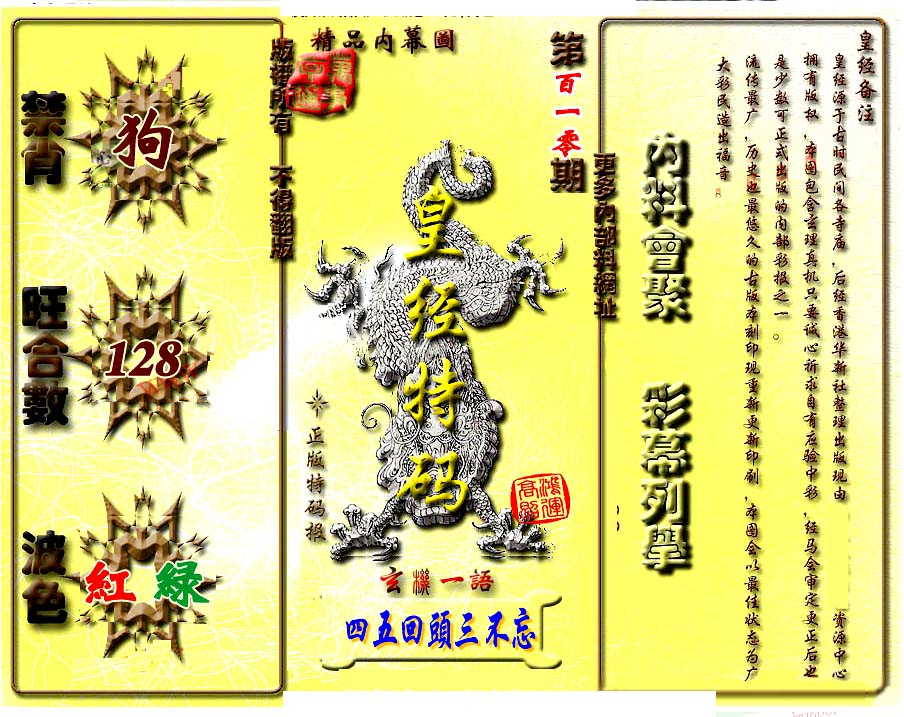 精品内幕圖
第百一零期
版權所有 不得翻版
更多內部料網址
禁肖
狗
旺合數
128
波色
紅 綠
皇经特码
正版特码报
鴻運高照
玄機一語
四五回頭三不忘
內料會聚
彩幕列擧
皇经备注
皇经源于古时民间各寺庙，后经香港华新社整理出版现由 资源中心
拥有版权，本图包含玄理真机只要诚心祈求自有应验中彩，经马会审定更正后也
是少数可正式出版的内部彩报之一。
流传最广，历史也最悠久的古版本刻印现重新更新印刷，本图会以最佳状态为广
大彩民造出福音